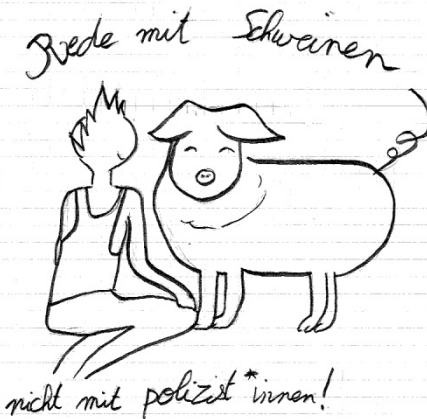 Rede mit Schweinen
nicht mit polizist*innen!